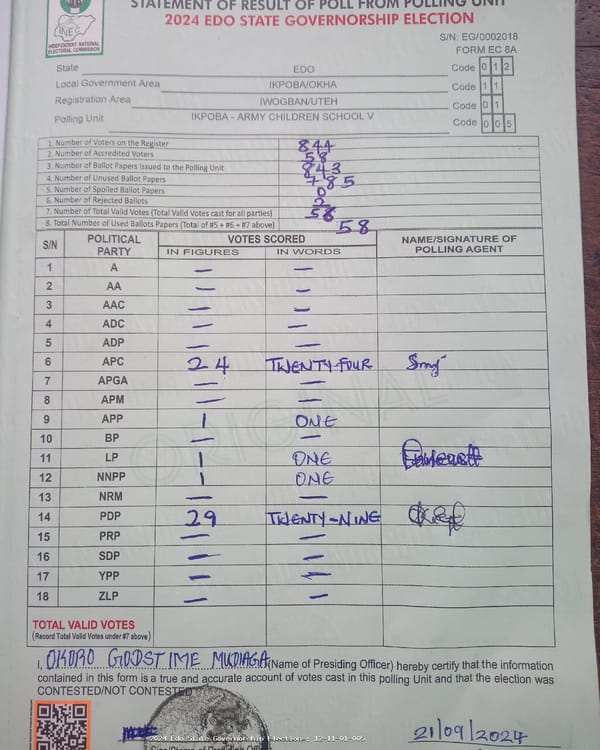 STATEMENT OF RESULT OF POLL FROM POLLING UNIT
2024 EDO STATE GOVERNORSHIP ELECTION
INEC
INDEPENDENT NATIONAL ELECTORAL COMMISSION
S/N: EG/0002018
FORM EC 8A
State EDO Code 0 1 2
Local Government Area IKPOBA/OKHA Code 1 1
Registration Area IWOGBAN/UTEH Code 0 1
Polling Unit IKPOBA - ARMY CHILDREN SCHOOL V Code 0 0 5
1. Number of Voters on the Register 844
2. Number of Accredited Voters 58
3. Number of Ballot Papers Issued to the Polling Unit 843
4. Number of Unused Ballot Papers 785
5. Number of Spoiled Ballot Papers 0
6. Number of Rejected Ballots 2
7. Number of Total Valid Votes (Total Valid Votes cast for all parties)
8. Total Number of Used Ballots Papers (Total of #5 + #6 + #7 above) 58
S/N POLITICAL PARTY VOTES SCORED NAME/SIGNATURE OF POLLING AGENT
IN FIGURES IN WORDS
1 A — —
2 AA — —
3 AAC — —
4 ADC — —
5 ADP — —
6 APC 24 TWENTY-FOUR
7 APGA — —
8 APM — —
9 APP 1 ONE
10 BP — —
11 LP 1 ONE
12 NNPP 1 ONE
13 NRM — —
14 PDP 29 TWENTY-NINE
15 PRP — —
16 SDP — —
17 YPP — —
18 ZLP — —
ORIGINAL
TOTAL VALID VOTES
(Record Total Valid Votes under #7 above)
I, OKORO GODSTIME MUDIAGA (Name of Presiding Officer) hereby certify that the information
contained in this form is a true and accurate account of votes cast in this polling Unit and that the election was
CONTESTED/NOT CONTESTED
2024 Edo State Governorship Election - 12-11-01-005
21/09/2024